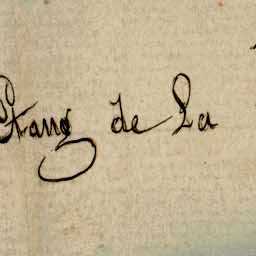 Etang de La